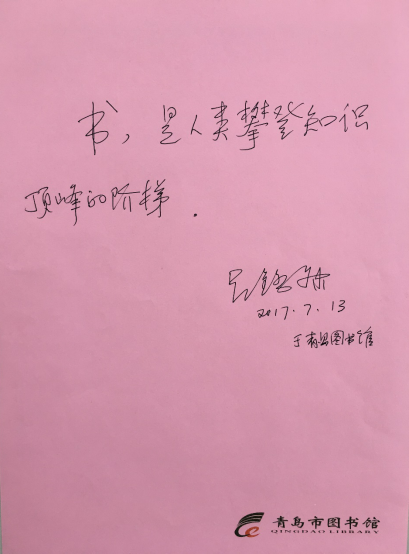 书，是人类攀登知识
顶峰的阶梯．
2017.7.13
于青岛图书馆
青岛市图书馆
QINGDAO LIBRARY